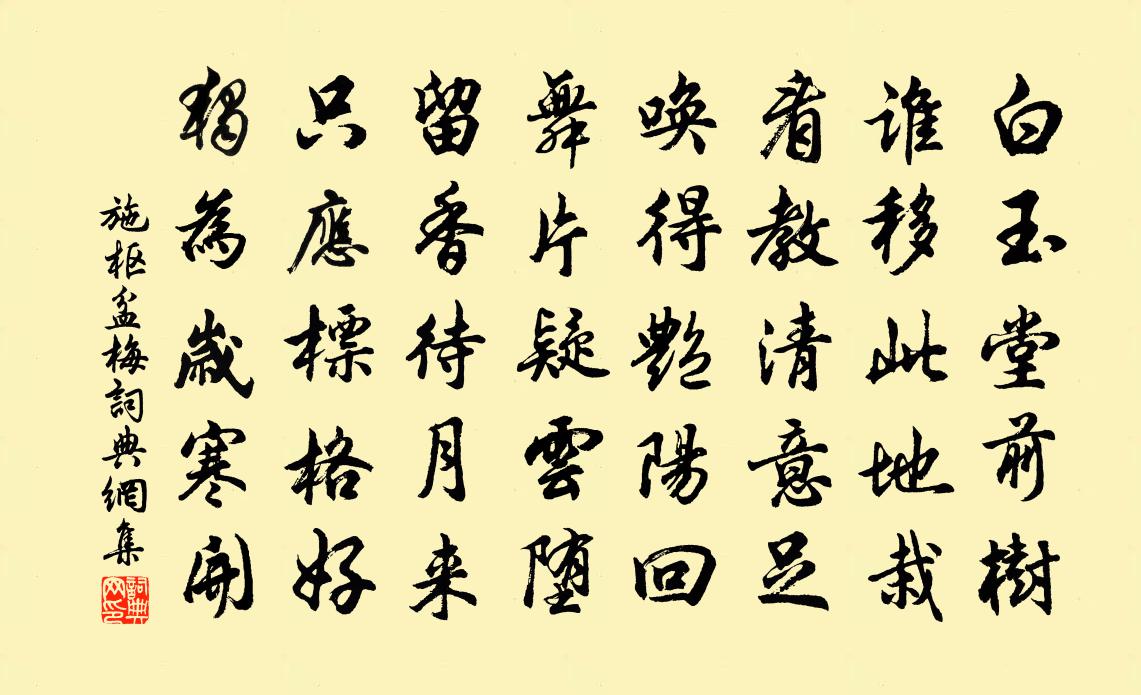 白玉堂前樹
誰移此地栽
看教清意足
喚得艷陽回
舞片疑雲堕
留香待月来
只應標格好
獨為歲寒開
施枢盆梅詞典網集
詞典网印